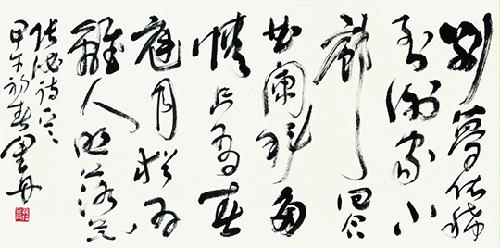 别梦依稀
到谢家小
廊回合
曲阑斜多
情只有春
庭月犹为
离人照落花
张泌诗
甲午初春